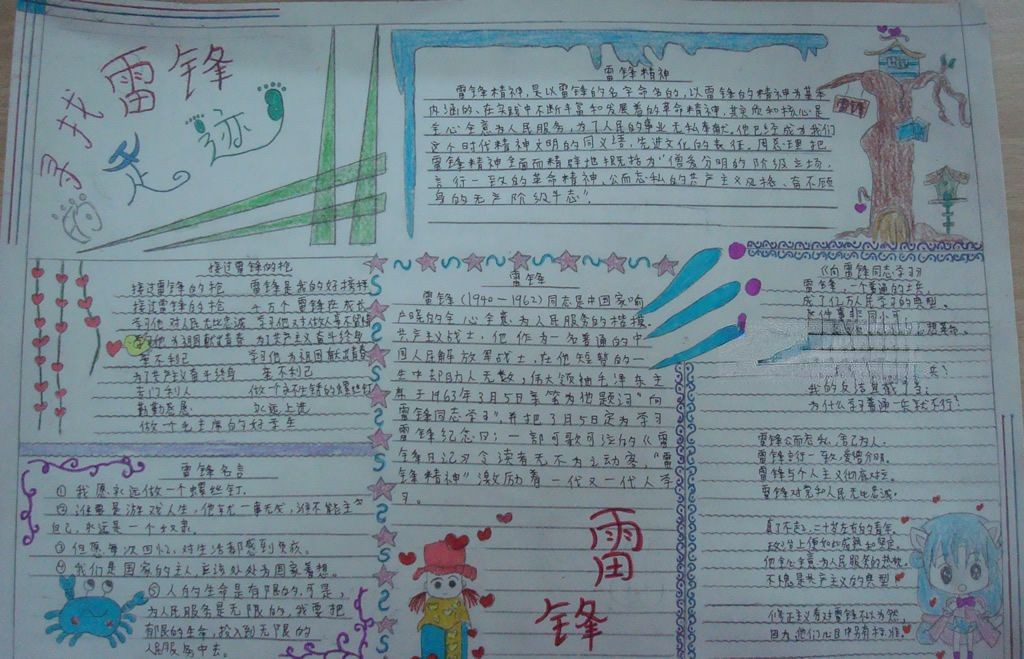 寻找雷锋
足迹
雷锋精神
雷锋精神,是以雷锋的名字命名的,以雷锋的精神为基本
内涵的、在实践中不断丰富和发展着的革命精神,其实质和核心是
全心全意为人民服务,为了人民的事业无私奉献。他已经成为我们
这个时代精神文明的同义语、先进文化的表征。周恩来把
雷锋精神全面而精辟地概括为“憎爱分明的阶级立场、
言行一致的革命精神、公而忘私的共产主义风格、奋不顾
身的无产阶级斗志”。
雷锋
接过雷锋的枪
接过雷锋的枪 雷锋是我的好榜样
接过雷锋的枪 千万个雷锋在成长
学习他对人民无比忠诚
学习他为祖国献出青春 为了共产主义奋斗终身
毫不利己 学习他为祖国献出青春
为了共产主义奋斗终身 毫不利己
专门利人 做个永不生锈的螺丝钉
勤勤恳恳 永远上进
做个毛主席的好学生
雷锋名言
①我愿永远做一个螺丝钉。
②谁要是游戏人生,他就一事无成,谁不能主宰
自己,永远是一个奴隶。
③但愿每次回忆,对生活都感到负疚。
④我们是国家的主人,应该处处为国家着想。
⑤人的生命是有限的,可是,
为人民服务是无限的,我要把
有限的生命,投入到无限的
人民服务中去。
雷锋
雷锋(1940-1962)同志是中国家喻
户晓的全心全意为人民服务的楷模,
共产主义战士,他作为一名普通的中
国人民解放军战士,在他短暂的一
生中却助人无数,伟大领袖毛泽东主
席于1963年3月5日亲笔为他题词“向
雷锋同志学习”,并把3月5日定为学习
雷锋纪念日;一部可歌可泣的《雷
锋日记》令读者无不为之动容,“雷
锋精神”激励着一代又一代人学
习。
雷
锋
《向雷锋同志学习》
雷锋,一个普通的士兵,
成了亿万人民学习的典型。
兵!
为什么学习普通一兵就不行?
雷锋公而忘私,舍己为人。
雷锋言行一致,爱憎分明。
雷锋与个人主义彻底对立。
雷锋对党和人民无比忠诚。
真了不起,二十岁左右的青年,
政治上便如此成熟和坚定。
他全心全意为人民服务的热忱,
不愧是共产主义的典型。
修正主义者对雷锋不以为然,
因为他们心目中另有标准。